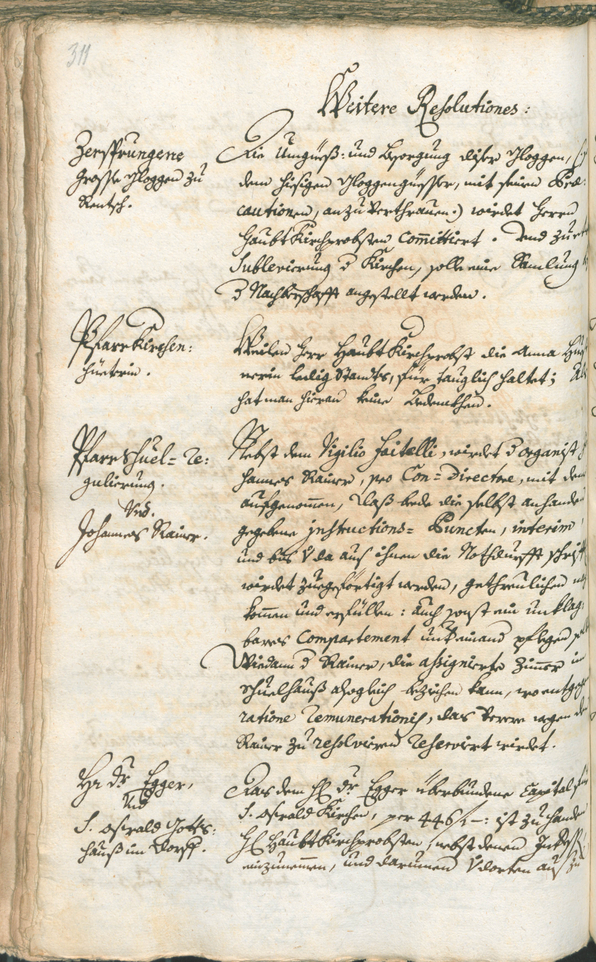 311
Weitere Resolutiones:
Zersprungene
grosse Gloggen zu
Rentsch.
Die Umgüß- und Besorgung diser Gloggen,
dem hiesigen Gloggengiesser, mit seinen Præ-
cautionen, anzuverthrauen) wirdet Herrn
Haubt Kirchprobsten committiert. Und zur
Sublevierung d Kirchen, solle eine Samlung
d Nachberschafft angestellt werden.
Pfarrkirchen-
hüeterin.
Weilen Herr Haubt Kirchprobst die Anna
nerin ledig Standts, für tauglich haltet;
hat man hieran keine Bedenkhen.
Pfarrschuel- Re-
gulierung.
Vid.
Johannes Rainer.
Nebst dem Vigilio Faitelli, wirdet d Organist
hannes Rainer, pro Con-Directore, mit dem
aufgenommen, daß bede die selbst anhanden
gegebene Instructions- Puncten, interim,
und bis da aus ihnen die Nothdurfft
wirdet zuegeförtigt werden, getreulichen
kommen und erfüllen: auch sonst ein unklag-
bares Comportement unteinand pflegen
Wiedann d Rainer, die assignierte Zimmer in
Schuelhauß alsogleich beziehen kann, wo entgegen
ratione remunerationis, das verrere wegen
Rainer zu resolvieren reserviert wirdet.
Hr Dr. Egger,
Vid
S. Oswald Gotts-
hauß im Dorff.
Das dem H. Dr. Egger überbundene Capital
S. Oswald Kirchen, per 446 f —: ist zu handen
H. Haubt Kirchprobsten, nebst denen
einzunemmen, und darumen